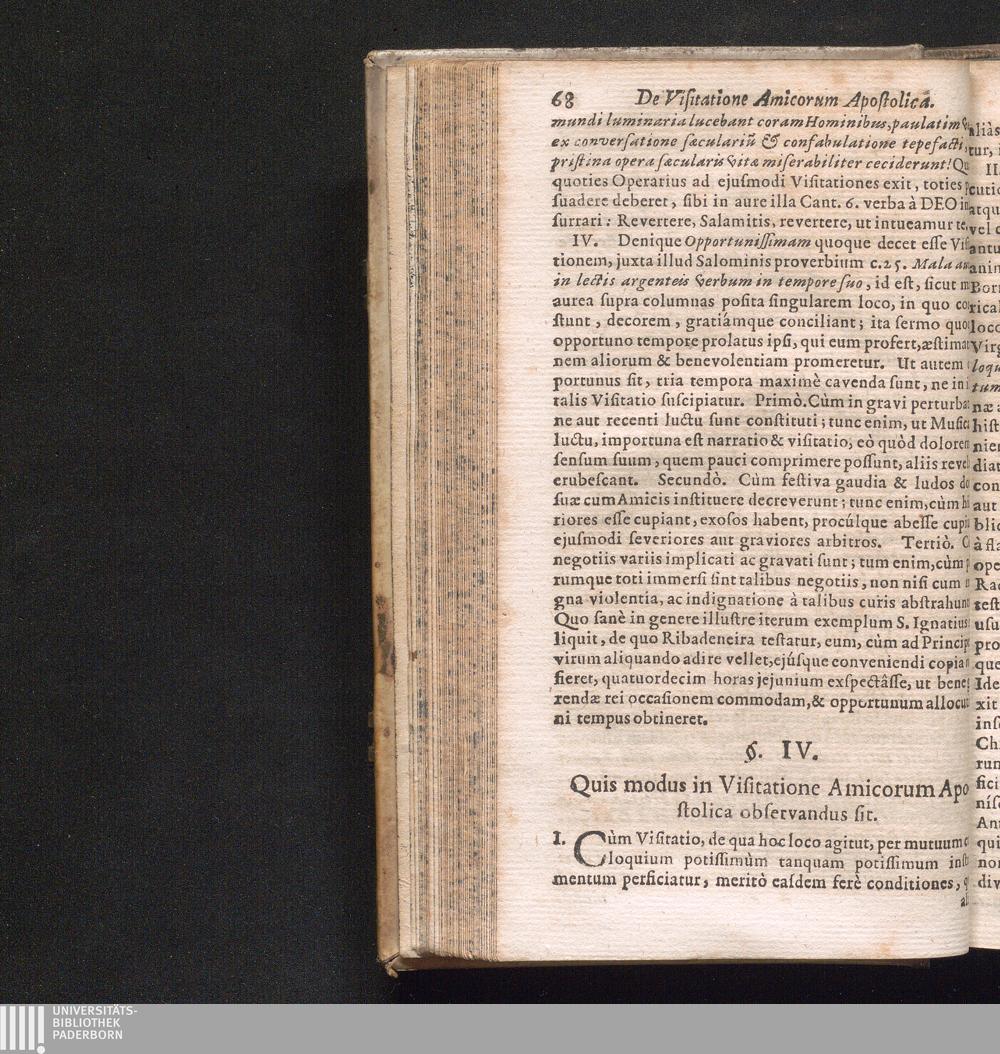 68 De Viſitatione Amicorum Apoſtolicâ.
mundi luminaria lucebant coram Hominibus, paulatim
ex converſatione ſæculariũ & confabulatione tepefacti,
priſtina opera ſæcularis vitæ miſerabiliter ceciderunt!
quoties Operarius ad ejuſmodi Viſitationes exit, toties
ſuadere deberet, ſibi in aure illa Cant. 6. verba à DEO
ſurrari: Revertere, Salamitis, revertere, ut intueamur te,
IV. Denique Opportuniſſimam quoque decet eſſe
tionem, juxta illud Salominis proverbium c.25. Mala
in lectis argenteis verbum in tempore ſuo, id eſt, ſicut
aurea ſupra columnas poſita ſingularem loco, in quo
ſtunt, decorem, gratiámque conciliant; ita ſermo
opportuno tempore prolatus ipſi, qui eum profert, æſtimat
nem aliorum & benevolentiam promeretur. Ut autem
portunus ſit, tria tempora maximè cavenda ſunt, ne in
talis Viſitatio ſuſcipiatur. Primò. Cùm in gravi perturba
ne aut recenti luctu ſunt conſtituti; tunc enim, ut Muſica
luctu, importuna eſt narratio & viſitatio, eò quòd dolorem
ſenſum ſuum, quem pauci comprimere poſſunt, aliis
erubeſcant. Secundò. Cùm feſtiva gaudia & ludos
ſuæ cum Amicis inſtituere decreverunt; tunc enim, cùm
riores eſſe cupiant, exoſos habent, procúlque abeſſe
ejuſmodi ſeveriores aut graviores arbitros. Tertiò.
negotiis variis implicati ac gravati ſunt; tum enim, cùm
rumque toti immerſi ſint talibus negotiis, non niſi cum
gna violentia, ac indignatione à talibus curis abſtrahun
Quo ſanè in genere illuſtre iterum exemplum S. Ignatius
liquit, de quo Ribadeneira teſtatur, eum, cùm ad Princip
virum aliquando adire vellet, ejúſque conveniendi copia
fieret, quatuordecim horas jejunium exſpectâſſe, ut bene
rendæ rei occaſionem commodam, & opportunum
ni tempus obtineret.
§. IV.
Quis modus in Viſitatione Amicorum Apo
ſtolica obſervandus ſit.
I. Cùm Viſitatio, de qua hoc loco agitut, per mutuum
loquium potiſſimùm tanquam potiſſimum
mentum perficiatur, meritò eaſdem ferè conditiones,
UNIVERSITÄTS-
BIBLIOTHEK
PADERBORN